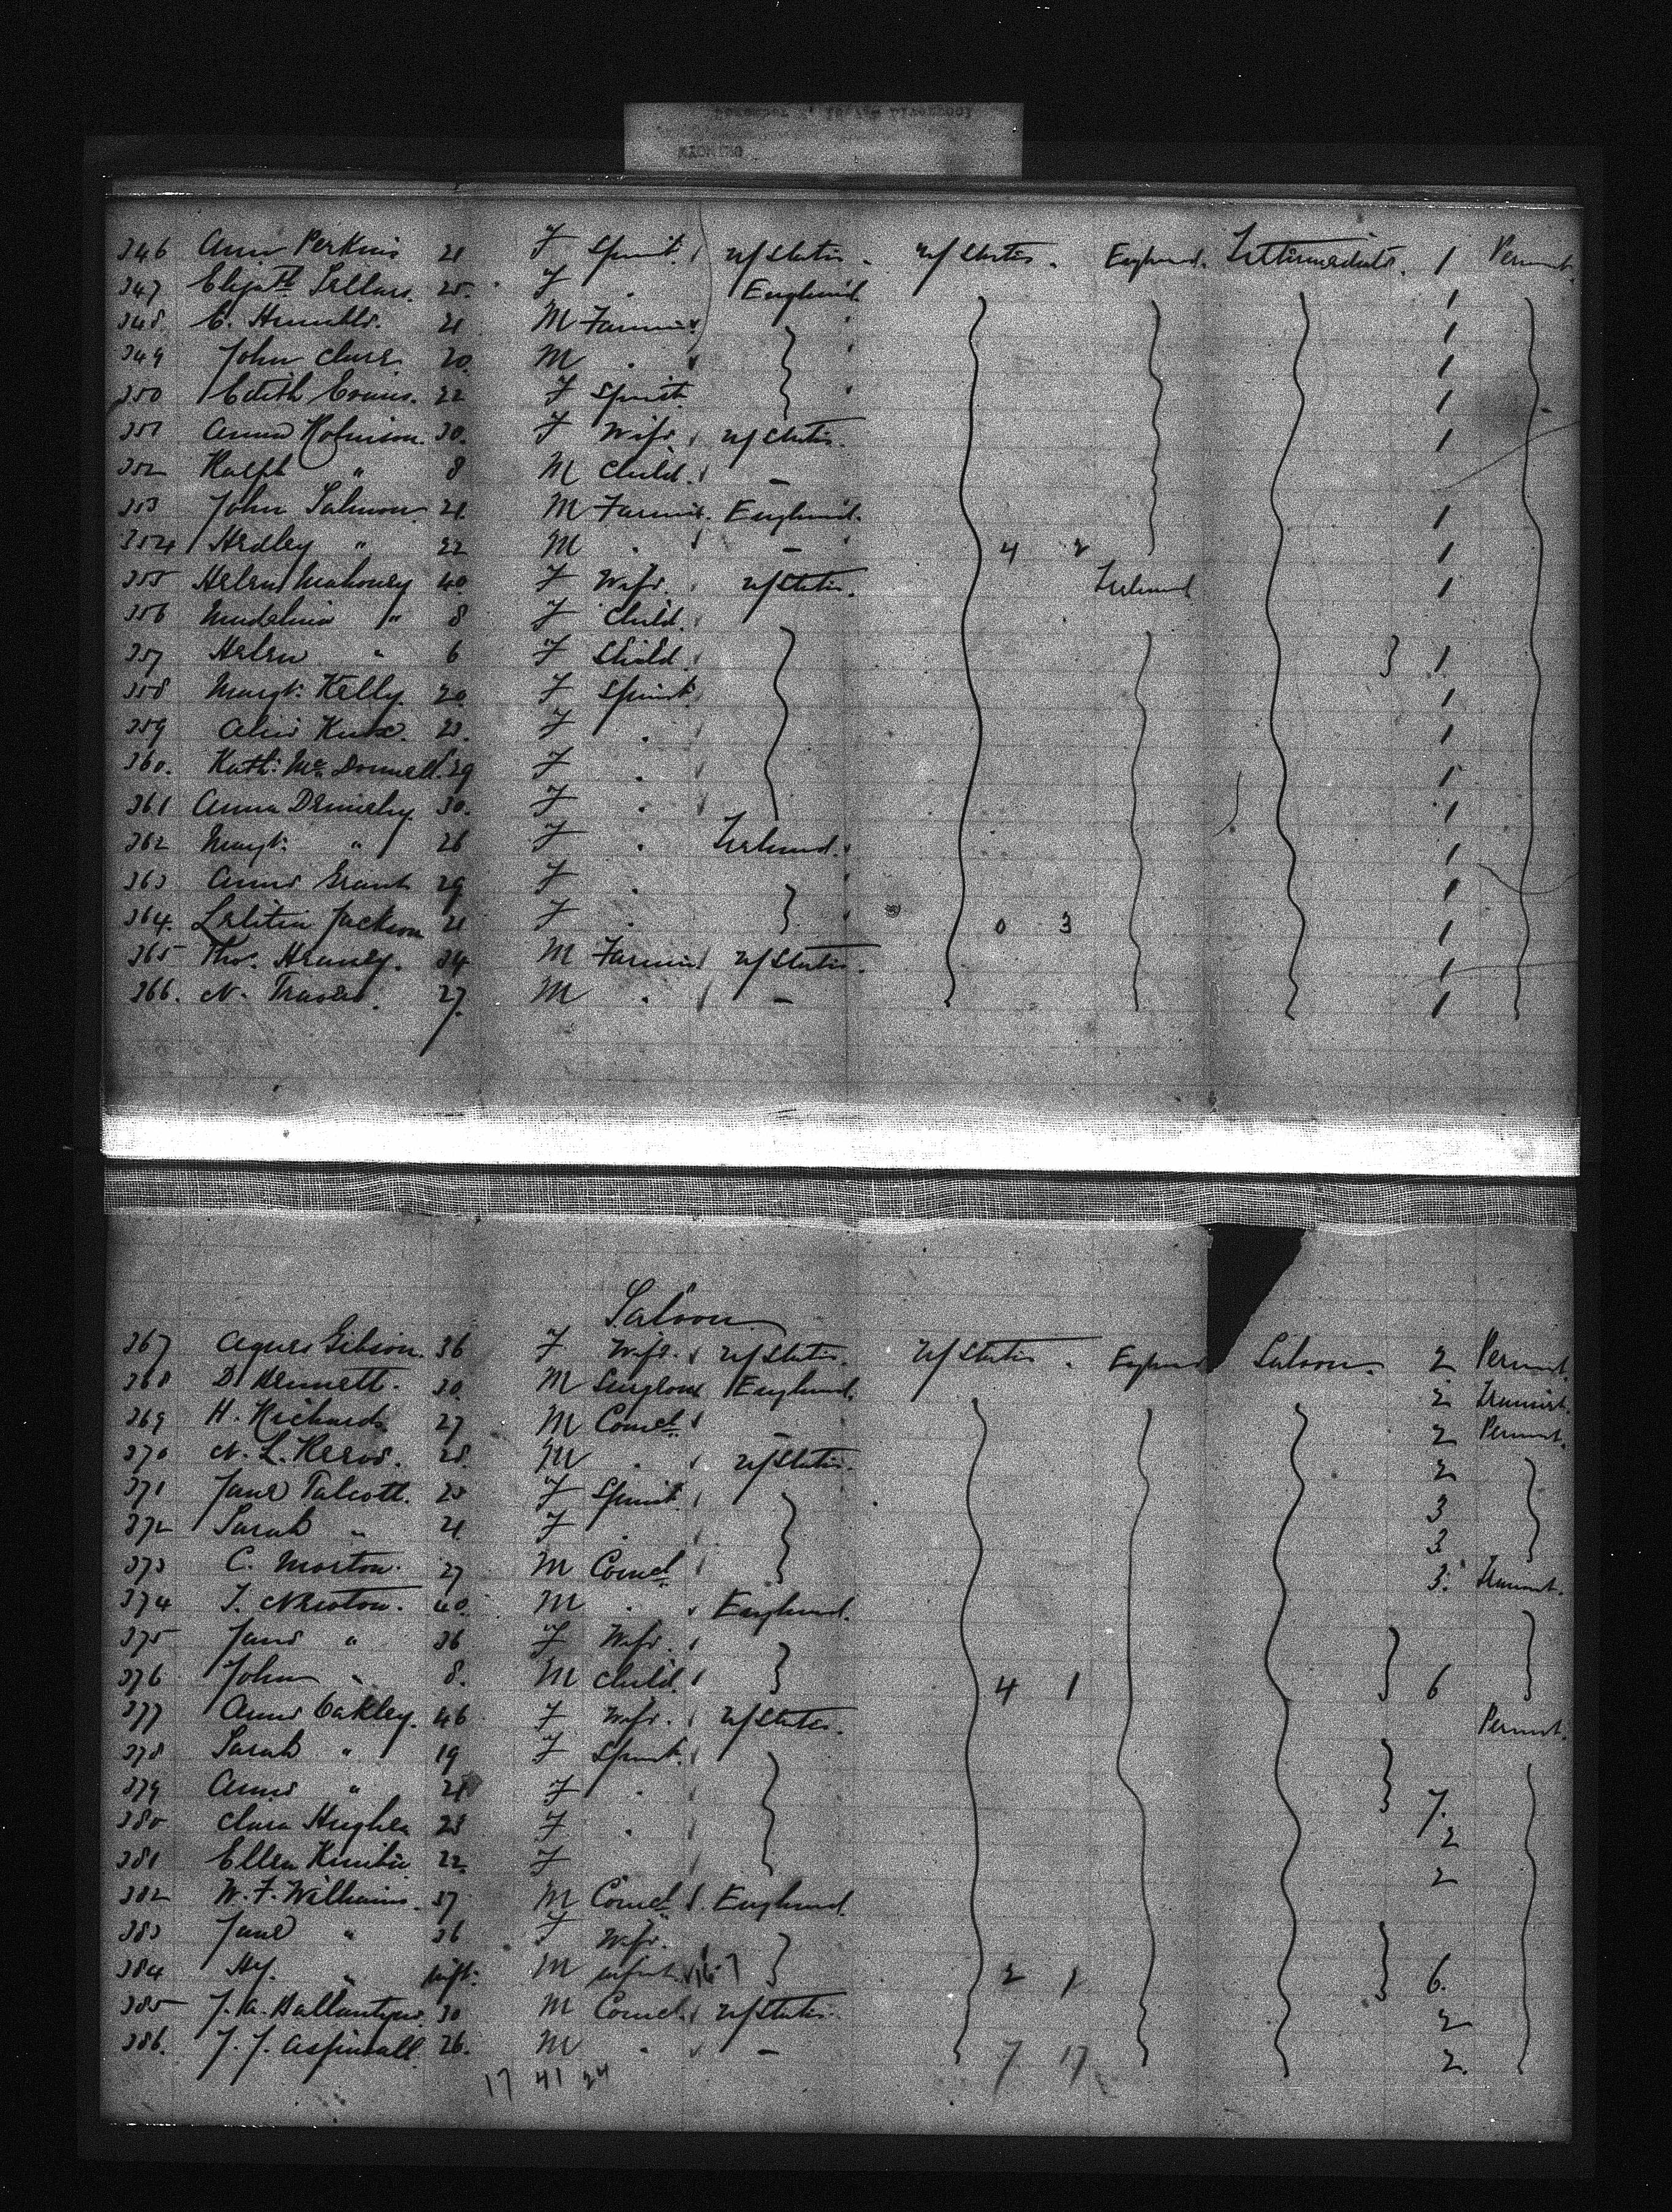 346 Ann Perkins 21 F Spinst. U/States. U/States. England. Intermediate. 1 Permt.
347 Elizath Sellars. 25. F . England. 1
348 C. Humbles. 21 M Farmer 1
349 John Clure. 20. M . 1
350 Edith Evans. 22 F Spinst. 1
351 Anna Robinson. 30. F Wife. U/States. 1
352 Ralph " 8 M Child. -
353 John Salmon 21. M Farmer. England. 1
354 Hedley " 22 M . - 4 2 1
355 Helen Mahoney 40. F Wife. U/States. Ireland 1
356 Madeline " 8 F Child.
357 Helen " 6 F Child. } 1
358 Margt. Kelly. 20. F Spinst. 1
359 Alice 23. F . 1
360. Kath: McDonnell. 29 F . 1
361 Anna 30. F . 1
362 Margt: " 26 F . Ireland. 1
363 Annie Grant 29 F . 1
364. Letitia Jackson 21 F . 0 3 1
365 Tho. Heaney. 34 M Farmer U/States. 1
366. N. Travers. 27. M . - 1
Saloon
367 Agnes Gibson. 36 F Wife. U/States. U/States. England Saloon 2 Permt.
368 D. Kennett. 30. M Surgeon England. 2 Transit.
369 H. Richards. 27 M Comcl. - 2 Permt.
370 N. L. 28. M . U/States. 2
371 Jane Talcott. 25 F Spinst. 3
372 Sarah " 21. F . 3.
373 C. Morton. 27 M Comcl 3. Transit.
374 T. Newton. 40. M . England.
375 Jane " 36 F Wife.
376 John " 8. M Child. 4 1 } 6
377 Annie Oakley. 46 F Wife. U/States. Permt.
378 Sarah " 19 F Spinst.
379 Annie " 21 F . } 7.
380 Clara Hughes 23 F . 2
381 Ellen 22. F 2
382 W. F. Williams. 37 M Comcl England.
383 Jane " 36 F Wife.
384 Hy. " Inft. M Infant 2 1 } 6.
385 J. A. Ballantyne. 30 M Comcl. U/States. 2
386. J. J. Aspinall. 26. M . - 7 17 2.
17 41 24